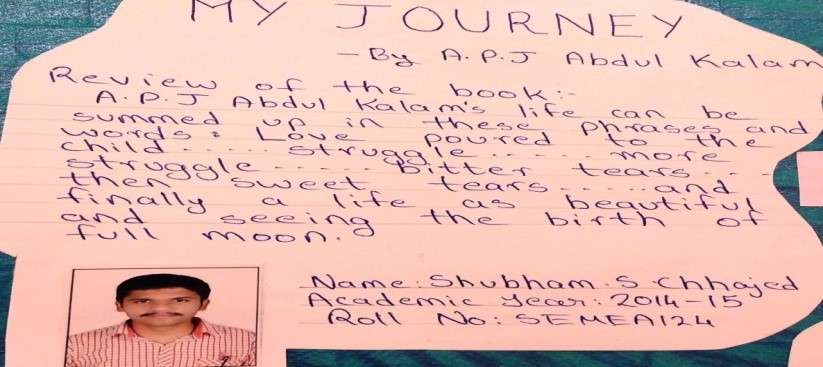 MY JOURNEY
- By A.P.J Abdul Kalam
Review of the book:-
A.P.J Abdul Kalam's life can be
summed up in these phrases and
words: Love poured to the
child.... struggle...... more
struggle...... bitter tears....
then sweet tears......and
finally a life as beautiful
and seeing the birth of
full moon.
Name: Shubham.S.Chhajed
Academic Year: 2014-15
Roll No: SEMEA124